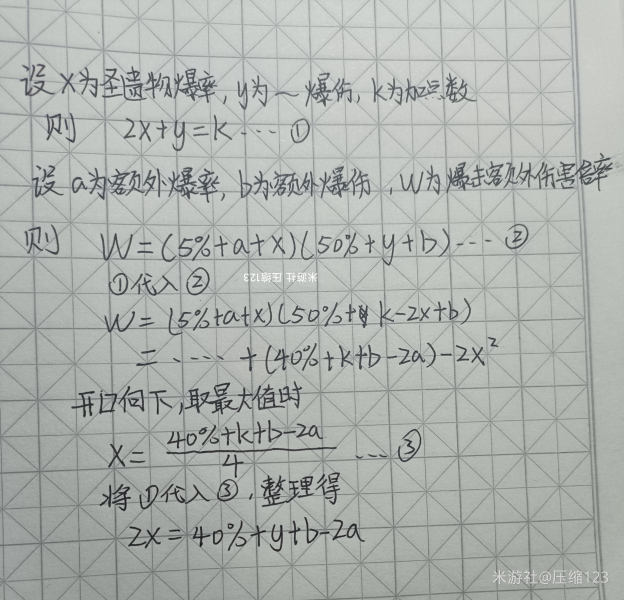 设x为圣遗物爆率,y为～爆伤,k为加点数
则 2x+y=k…①
设a为额外爆率,b为额外爆伤,W为爆击额外伤害倍率
则 W=(5%+a+x)(50%+y+b)…②
米游社 压缩123
①代入②
W=(5%+a+x)(50%+k-2x+b)
=……+(40%+k+b-2a)-2x²
开口向下,取最大值时
x=\frac{40%+k+b-2a}{4}…③
将①代入③,整理得
2x=40%+y+b-2a
米游社@压缩123